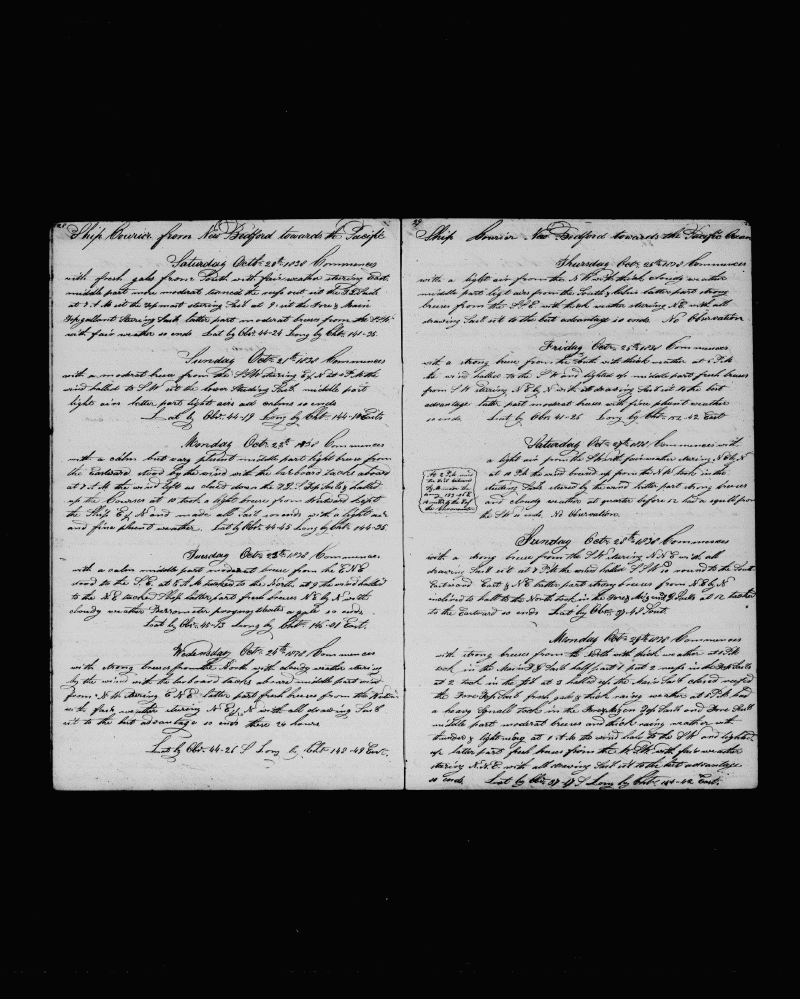 Ship Courier from New Bedford towards the Pacific
Saturday Oct 20th 1838 Commences
with fresh gales from South with fair weather steering East
middle part more moderate
at
Topgallant Steering Sail latter part moderate breeses from the
with fair weather so ends Lat by Obs 44-24 Long by Chr 141-35
Sunday Oct 21st 1838 Commences
with a moderate breese from the S W steering E by N at P M the
wind halled to S W set the lower Steering Sail middle part
light airs latter part light airs and calms so ends
Lat by Obs 44-19 Long by Chr 144-10 East
Monday Oct 22d 1838 Commences
with a calm but very plesent middle part light breese from
the Eastward stood by the wind with the larboard tacks aboard
at A M the wind left us clued down the Top Sails & halled
up the Courses at 10 took a light breese from Westward kept
the Ship E by N and made all Sail so ends with a light air
and fine plesent weather Lat by Obs 44-45 Long by Chr 144-35
Tuesday Oct 23d 1838 Commences
with a calm middle part moderat breese from the E N E
stood to the S E at 5 A M tacked to the North at 9 the wind halled
to the N E tacked Ship latter part fresh breeses N E by N with
cloudy weather Barrometer so ends
Lat by Obs Long by Chr 145-31 East
Wednesday Oct 24th 1838 Commences
with strong breeses from the North with cloudy weather steering
by the wind with the larboard tacks aboard middle part wind
from N W steering E N E latter part fresh breeses from the
with fair weather steering N E by N with all drawing Sail
set to the best advantage so ends these 24 hours
Lat by Obs 44-26 S Long by Chr 148-49 East
Ship Courier New Bedford towards the Pacific Ocean
Thursday Oct 25th 1838 Commences
with a light air from the N W with thick cloudy weather
middle part light airs from the South & Calm latter part strong
breeses from the S S E with thick weather steering N E with all
drawing Sail set to the best advantage so ends No Observation
Friday Oct 26th 1838 Commences
with a strong breese from the South with thick weather at P M
the wind halled to the S W and lighted up middle part fresh breeses
from S W steering N E by N with all drawing Sail set to the best
advantage latter part moderat breeses with fine plesent weather
so ends Lat by Obs 41-25 Long by Chr 152-42 East
Saturday Oct 27th 1838 Commences with
a light air from the South & fair weather steering N E by N
at 10 P M the wind hauled up from the N W took in the
steering Sails steered by the wind latter part strong breeses
and cloudy weather at quarter before 12 had a squall from
the S W so ends No Observation
Sunday Oct 28th 1838 Commences
with a strong breese from the S W steering N N E with all
drawing Sail set at P M the wind halled S S W round to the South
Eastward East & N E latter part strong breeses from N E by N
inclined to hall to the North took in the Fore Miz and G Sails at 12 tacked
to the Eastward so ends Lat by Obs 39-48 South
Monday Oct 29th 1838 Commences
with strong breeses from the North with thick weather at 1 P M
took in the Main G Sail half past 1 put 2 reefs in the Top Sails
at 2 took in the Jib at 3 halled up the Main Sail closed reefed
the Fore Top Sail fresh gale & thick rainy weather at 5 P M had
a heavy Squall took in the Fore Mizen Top Sail and Fore Sail
middle part moderat breeses and thick rainy weather with
thunder & lightning at 1 A M the wind haled to the S W and lighted
up latter part fresh breeses from the W S W with fair weather
steering N N E with all drawing Sail set to the best advantage
so ends Lat by Obs 37-17 S Long by Chr 154-42 East